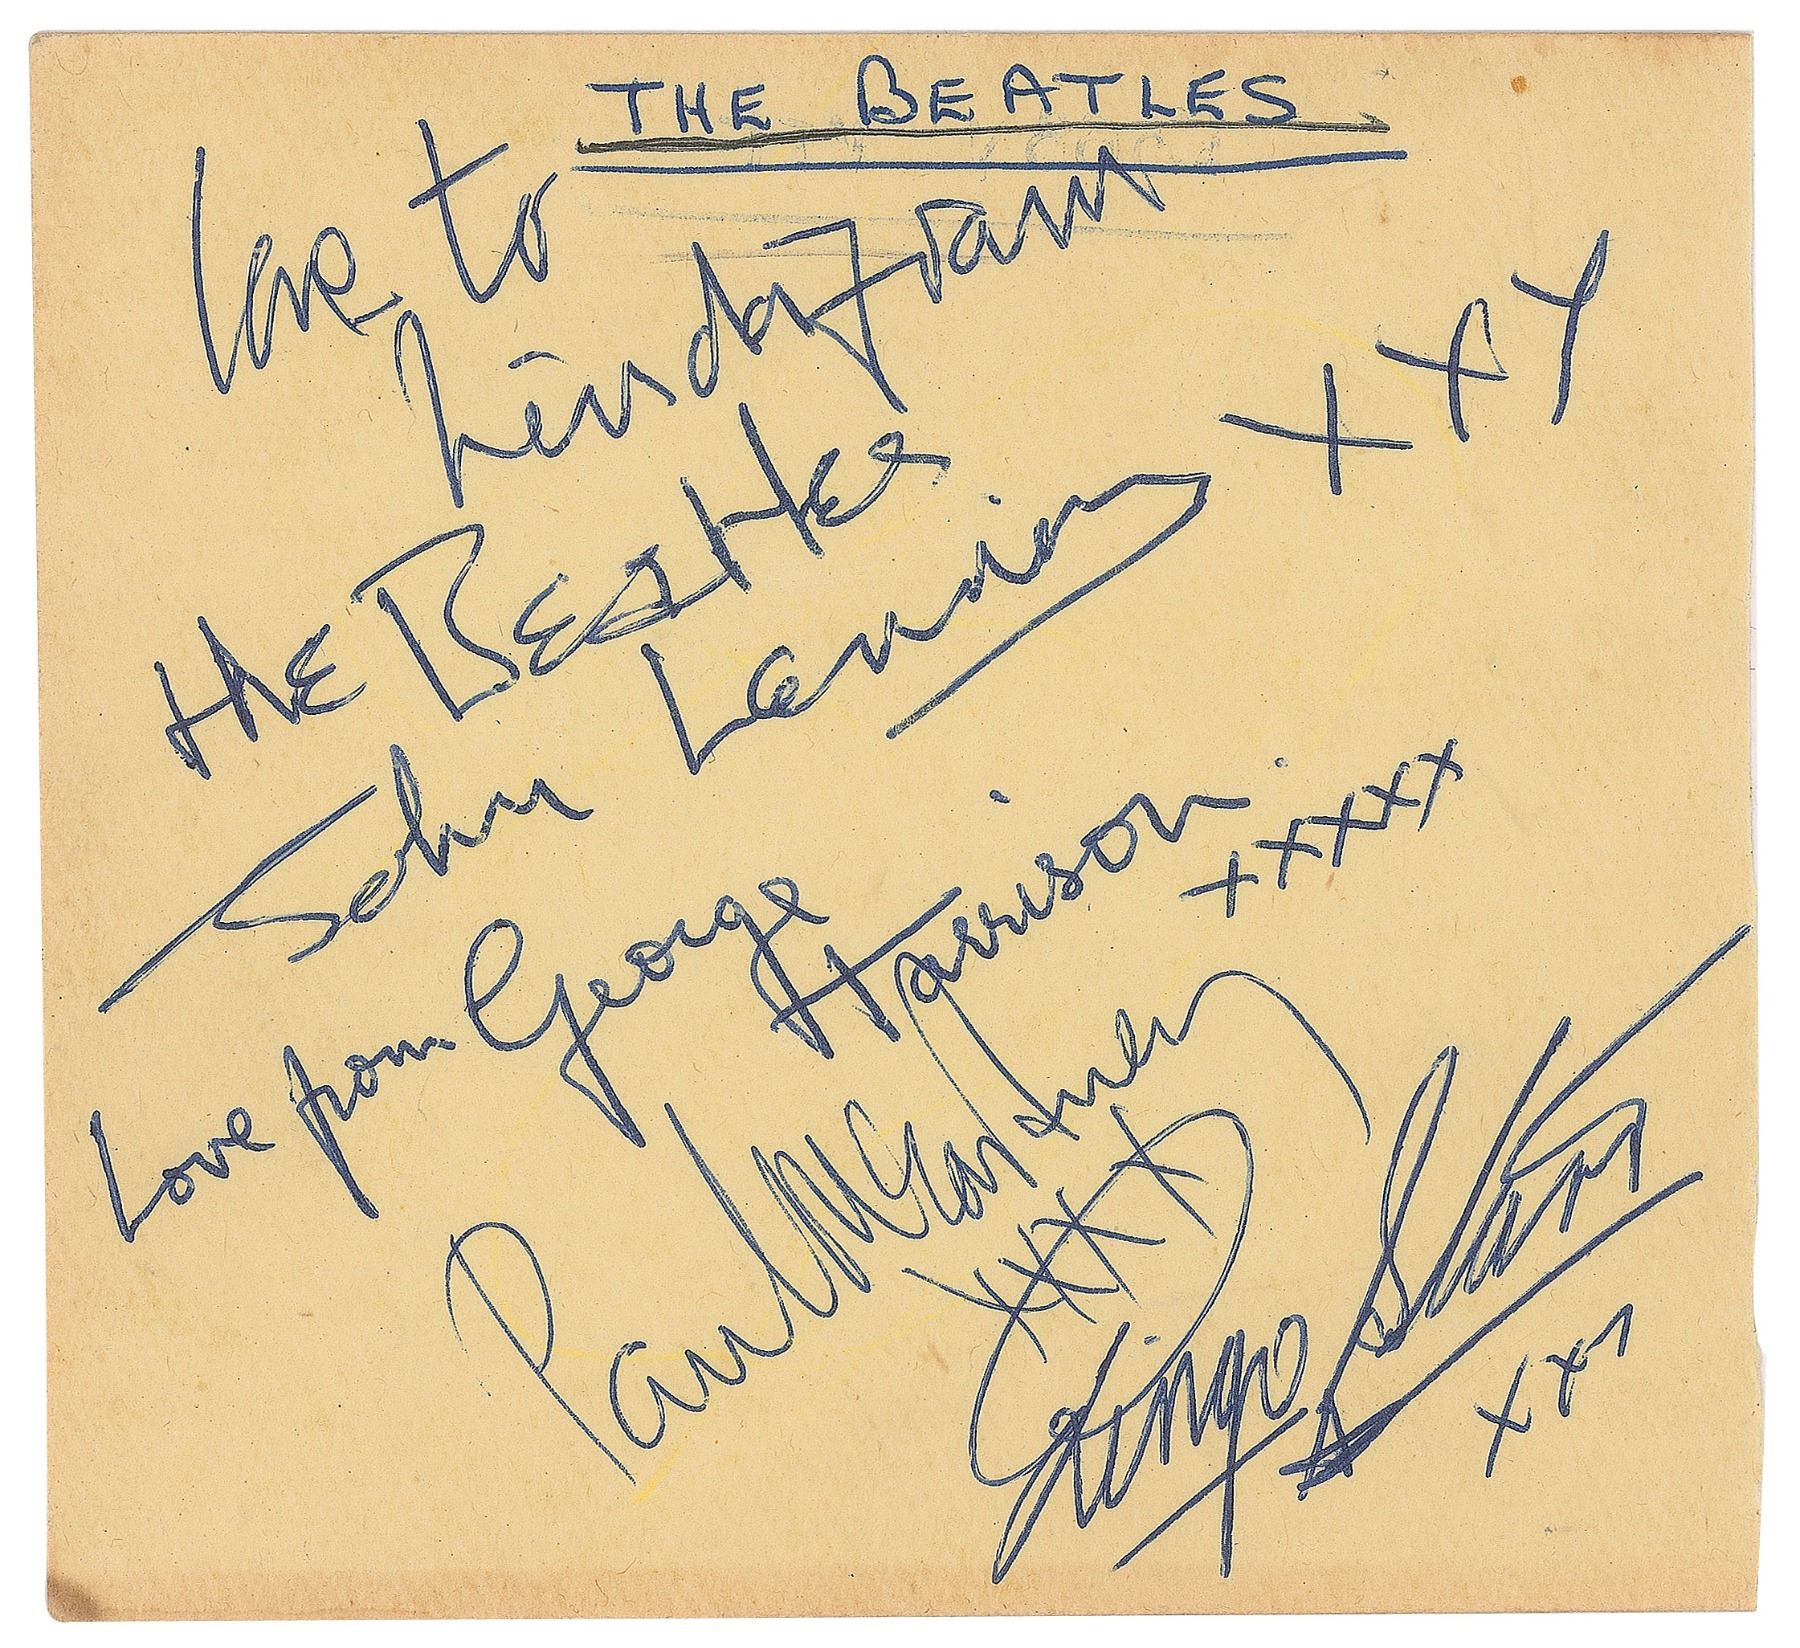 THE BEATLES
love to
Linda from
tHE BEAtLEs
John Lennon xxx
Love from George Harrison. xxxxx
Paul McCartney
xxxx
Ringo Starr
xxx